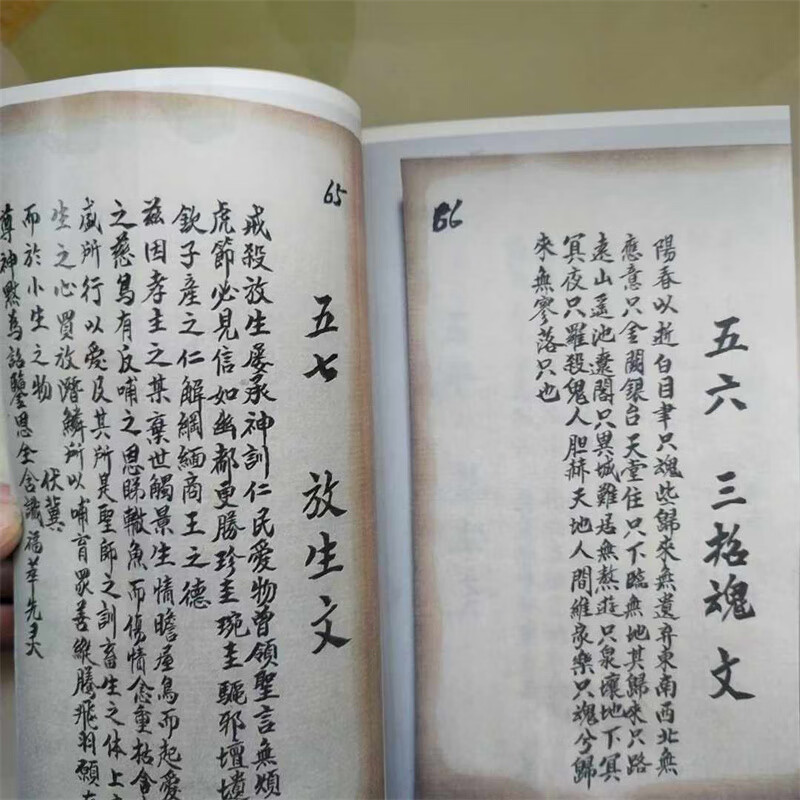 66
五六 三招魂文
陽春以逝白目聿只魂些歸來無遺弃東南西北無
應意只金闕銀台天堂住只下臨無地其歸來只路
遠山遥池臺閣只異城難居無熬遊只泉壤地下冥
冥夜只羅殺鬼人胆赫天地人間維家樂只魂兮歸
來無寥落只也
65
五七 放生文
戒殺放生屡承神訓仁民愛物曾領聖言無煩
虎節必見信如幽都更勝珍圭琬圭驅邪壇
欽子產之仁解網緬商王之德
兹因孝主之某棄世觸景生情瞻屋烏而起愛
之慈烏有反哺之恩睇轍魚而傷情愈重括含
威所行以愛及其所是聖師之訓畜生之体上
生之心買放潛鱗所以哺育眾善縱騰飛羽願
而於小生之物 伏冀
尊神默為詔鑒思全含識福莘先灵